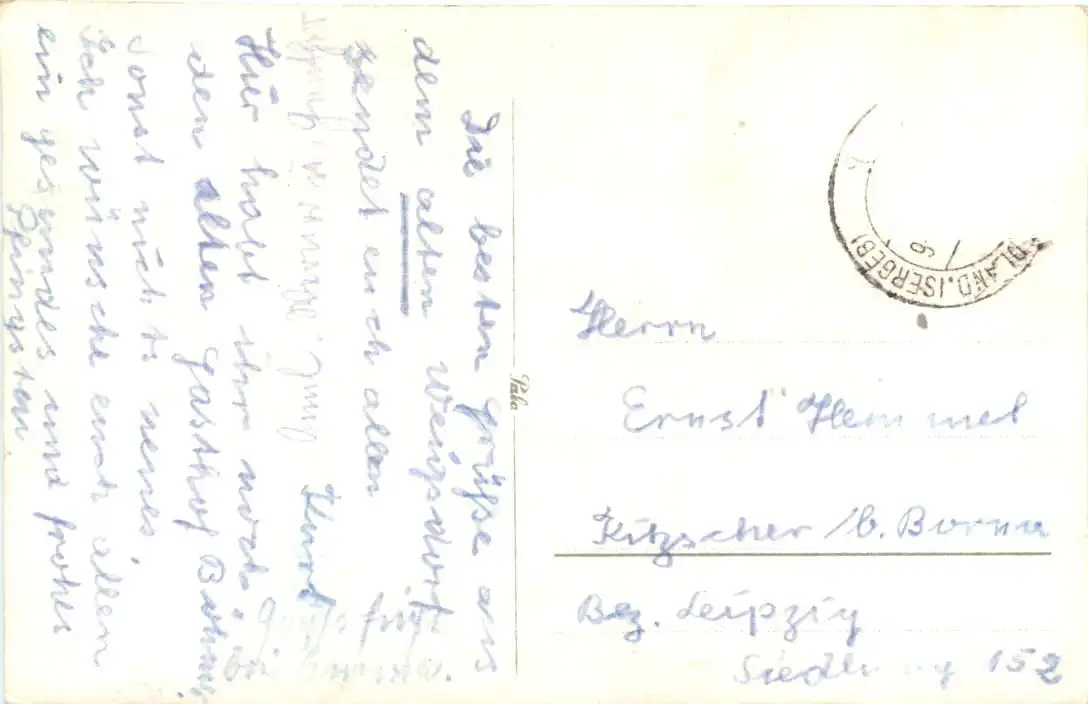 Die besten Grüße aus
dem alten Weigsdorf
sendet euch allen
Kurt
Hier habt ihr noch
den alten Gasthof
sonst nichts neues,
Ich wünsche euch allen
ein gesundes und frohes
Pfingsten
Pala
DLAND.ISERGEB
Herrn
Ernst Hemmel
Kitzscher /b. Borna
Bez. Leipzig
Siedlung 152